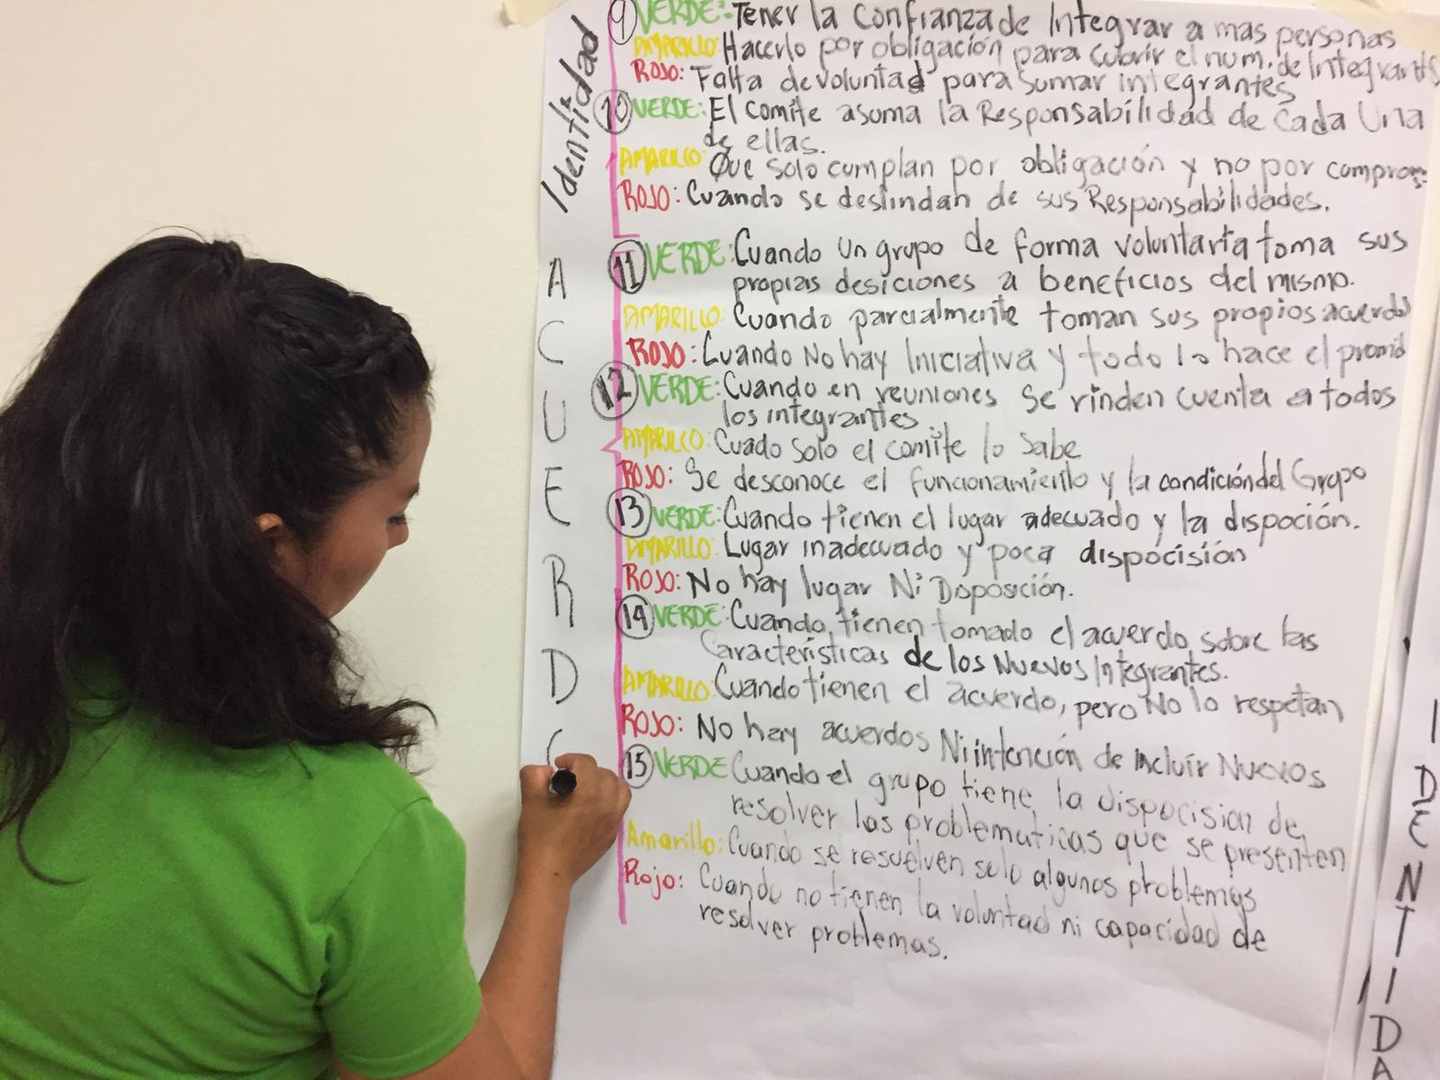 Identidad
9 VERDE: Tener la confianza de Integrar a mas personas
AMARILLO: Hacerlo por obligación para cubrir el num. de Integrants
ROJO: Falta de voluntad para sumar integrantes
10 VERDE: El comite asuma la Responsabilidad de cada Una
de ellas.
AMARILLO: Que solo cumplan por obligación y no por compromis
ROJO: Cuando se deslindan de sus Responsabilidades.
ACUERDO
11 VERDE: Cuando Un grupo de forma voluntaria toma sus
propias desiciones a beneficios del mismo.
AMARILLO: Cuando parcialmente toman sus propios acuerdos
ROJO: Cuando No hay Iniciativa y todo lo hace el promid
12 VERDE: Cuando en reuniones se rinden cuenta a todos
los integrantes.
AMARILLO: Cuado solo el comite lo sabe
ROJO: Se desconoce el funcionamiento y la condición del Grupo
13 VERDE: Cuando tienen el lugar adecuado y la dispoción.
AMARILLO: Lugar inadecuado y poca dispocisión
ROJO: No hay lugar Ni Disposición.
14 VERDE: Cuando tienen tomado el acuerdo sobre las
Características de los Nuevos Integrantes.
AMARILLO: Cuando tienen el acuerdo, pero No lo respetan
ROJO: No hay acuerdos Ni intención de Incluir Nuevos
15 VERDE Cuando el grupo tiene la dispocision de
resolver las problematicas que se presenten
Amarillo: Cuando se resuelven solo algunos problemas
Rojo: Cuando no tienen la voluntad ni capacidad de
resolver problemas.
IDENTIDA